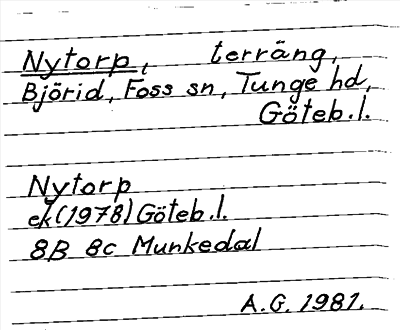 Nytorp, terräng,
Björid, Foss sn, Tunge hd,
Göteb.l.
Nytorp
ek (1978) Göteb.l.
8B 8c Munkedal
A.G. 1981.